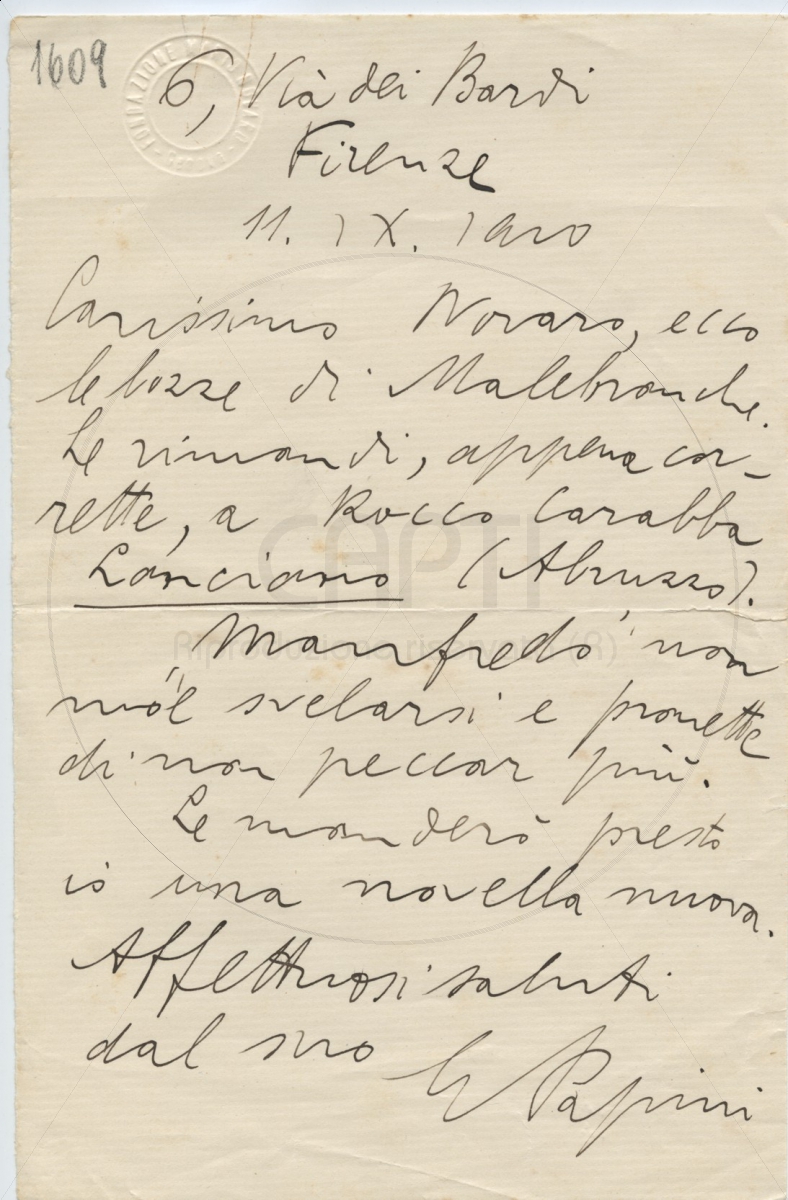 1609
6, Via dei Bardi
Firenze
11. IX. 1910
Carissimo Novaro, ecco
le bozze di Malebranche.
Le rimandi, appena cor-
rette, a Rocco Carabba
Lanciano (Abruzzo).
"Manfredo" non
vuol svelarsi e promette
di non peccar più.
Le manderò presto
io una novella nuova.
Affettuosi saluti
dal suo G Papini
CAPTI
Riproduzione riservata (R)